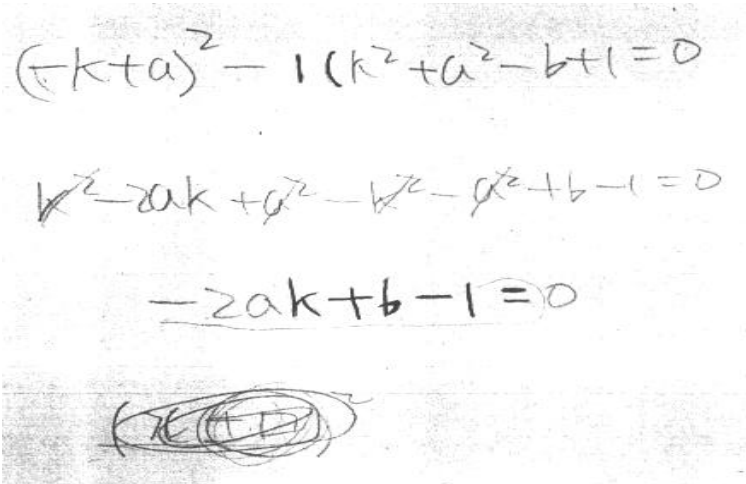 (-k+a)² - 1(k²+a²-b+1=0
k²-2ak+a²-k²-a²+b-1=0
-2ak+b-1=0